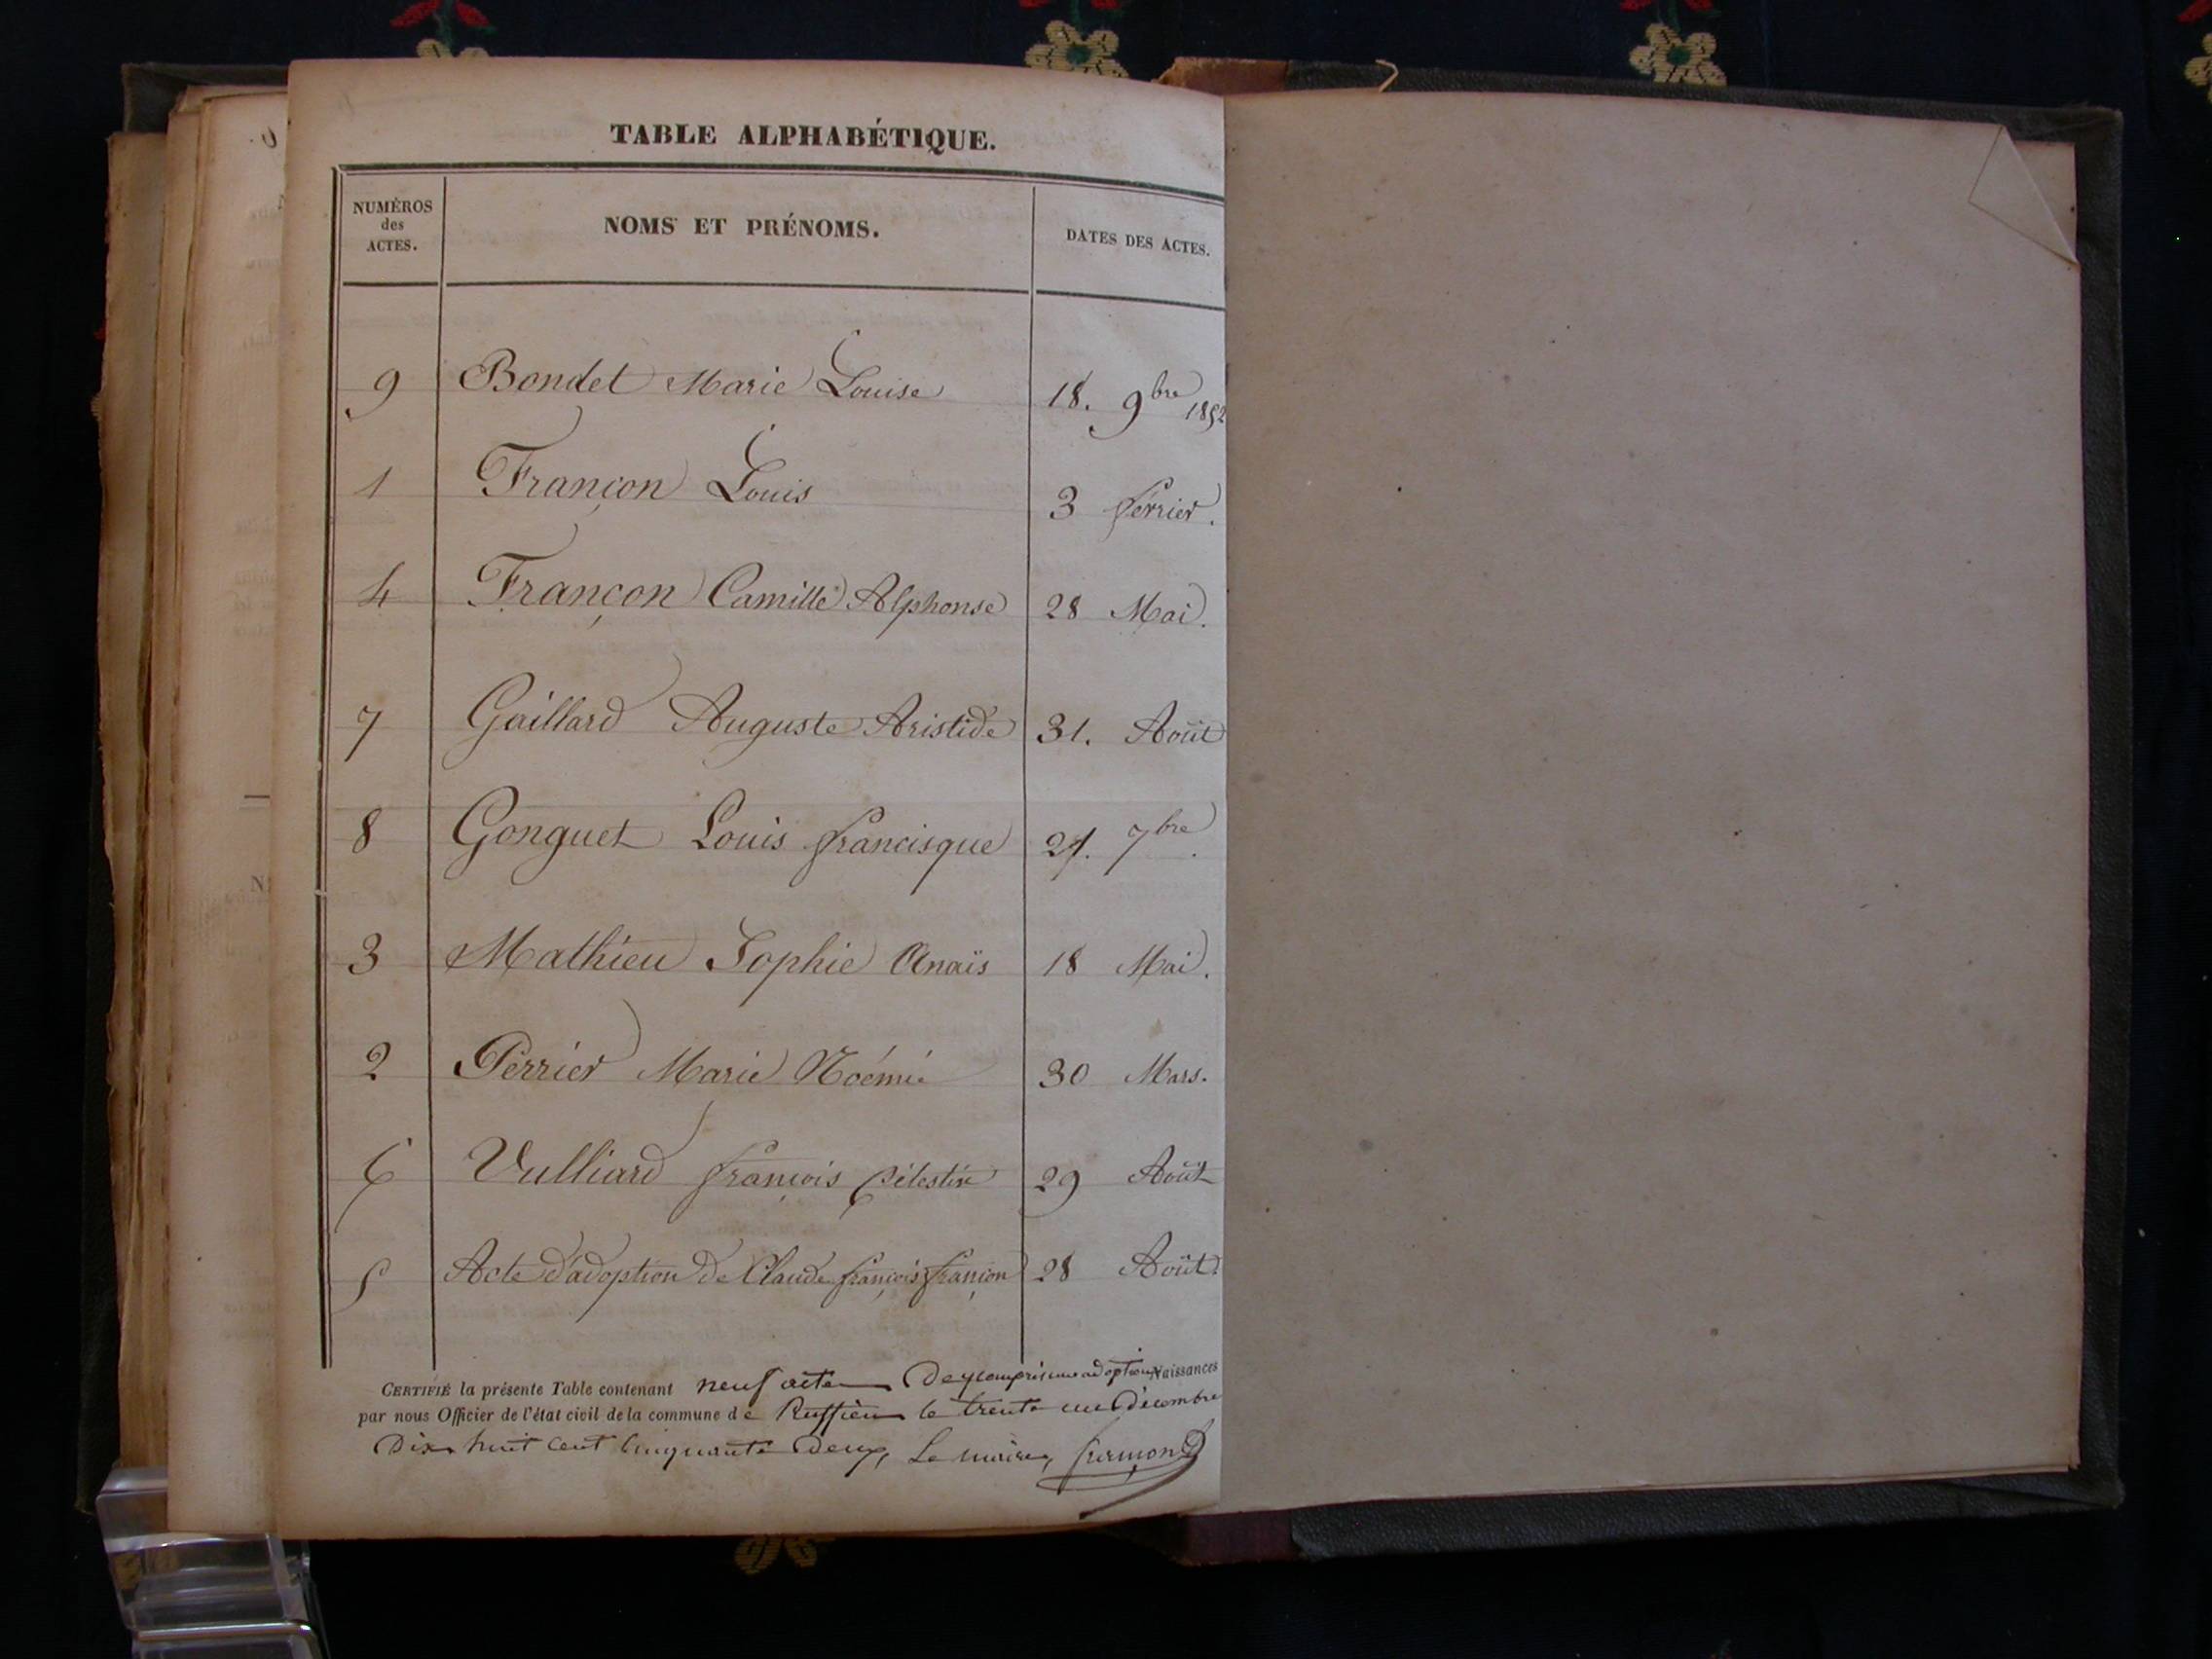 TABLE ALPHABÉTIQUE.
NUMÉROS des ACTES. NOMS ET PRÉNOMS. DATES DES ACTES.
9 Bondet Marie Louise 18. 9bre 1852
1 Françon Louis 3 février.
4 Françon Camille Alphonse 28 Mai.
7 Gaillard Auguste Aristide 31. Août
8 Gonguet Louis francisque 21. 7bre.
3 Mathieu Sophie Anaïs 18 Mai.
2 Perrier Marie Noémie 30 Mars.
6 Vulliard françois Célestin 29 Août
5 Acte d'adoption de Claude françois françon 28 Août.
CERTIFIÉ la présente Table contenant neuf actes De y compris une adoption Naissances
par nous Officier de l'état civil de la commune de Ruffieu le trente un Décembre
Dix huit cent Cinquante Deux, Le maire,